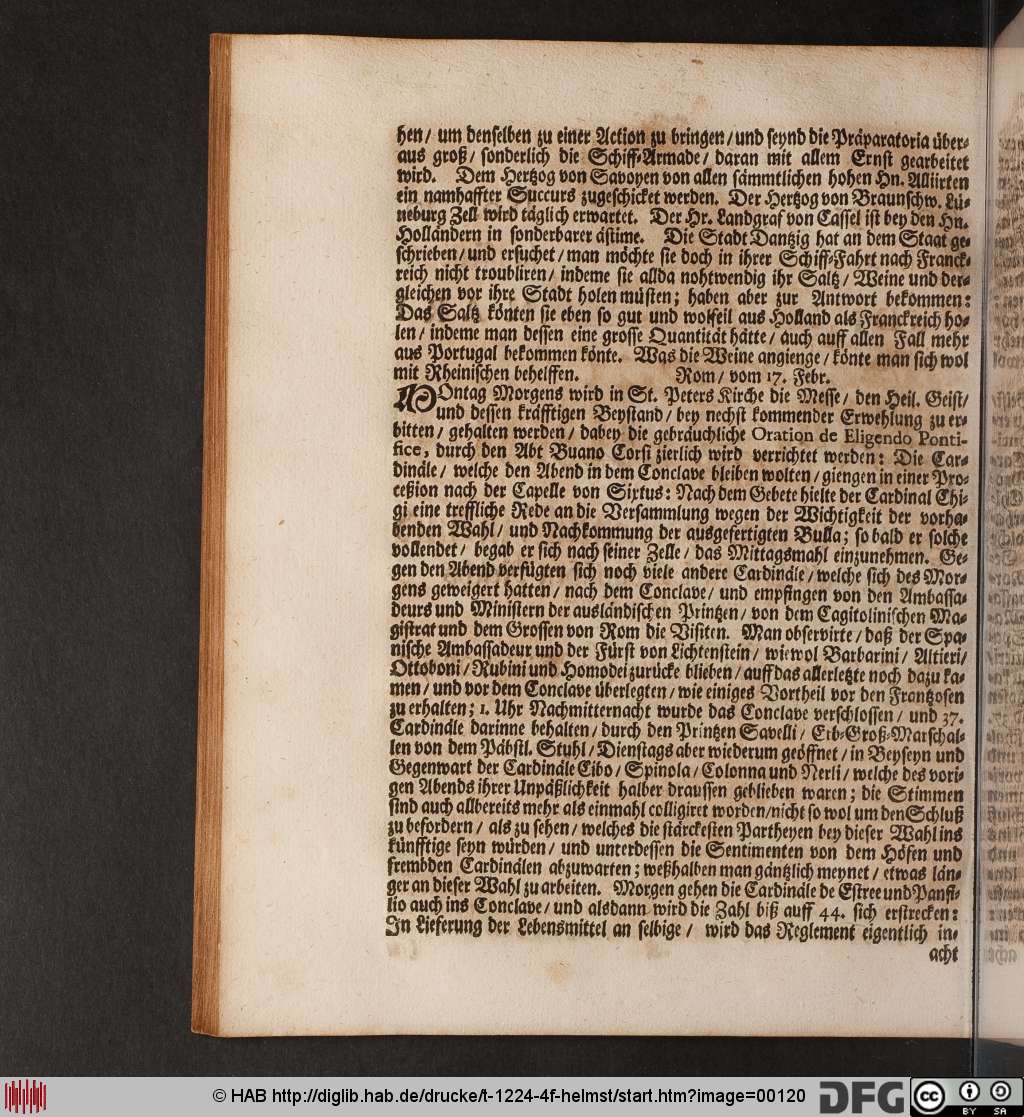 hen/ um denselben zu einer Action zu bringen/ und seynd die Präparatoria über-
aus groß/ sonderlich die Schiff-Armade/ daran mit allem Ernst gearbeitet
wird. Dem Hertzog von Savoyen von allen sämmtlichen hohen Hn. Alliirten
ein namhaffter Succurs zugeschicket werden. Der Hertzog von Braunschw. Lü-
neburg Zell wird täglich erwartet. Der Hr. Landgraf von Cassel ist bey den Hn.
Holländern in sonderbarer ästime. Die Stadt Dantzig hat an dem Staat ge-
schrieben/ und ersuchet/ man möchte sie doch in ihrer Schiff-Fahrt nach Franck-
reich nicht troubliren/ indeme sie allda nohtwendig ihr Saltz/ Weine und der-
gleichen vor ihre Stadt holen müsten; haben aber zur Antwort bekommen:
Das Saltz könten sie eben so gut und wolfeil aus Holland als Franckreich ho-
len/ indeme man dessen eine grosse Quantität hätte/ auch auff allen Fall mehr
aus Portugal bekommen könte. Was die Weine angienge/ könte man sich wol
mit Rheinischen behelffen. Rom/ vom 17. Febr.
MOntag Morgens wird in St. Peters Kirche die Messe/ den Heil. Geist/
und dessen kräfftigen Beystand/ bey nechst kommender Erwehlung zu er-
bitten/ gehalten werden/ dabey die gebräuchliche Oration de Eligendo Ponti-
fice, durch den Abt Buano Corsi zierlich wird verrichtet werden: Die Car-
dinäle/ welche den Abend in dem Conclave bleiben wolten/ giengen in einer Pro-
ceßion nach der Capelle von Sixtus: Nach dem Gebete hielte der Cardinal Chi-
gi eine treffliche Rede an die Versammlung wegen der Wichtigkeit der vorha-
benden Wahl/ und Nachkommung der ausgefertigten Bulla; so bald er solche
vollendet/ begab er sich nach seiner Zelle/ das Mittagsmahl einzunehmen. Ge-
gen den Abend verfügten sich noch viele andere Cardinäle/ welche sich des Mor-
gens geweigert hatten/ nach dem Conclave/ und empfingen von den Ambassa-
deurs und Ministern der ausländischen Printzen/ von dem Cagitolinischen Ma-
gistrat und dem Grossen von Rom die Visiten. Man observirte/ daß der Spa-
nische Ambassadeur und der Fürst von Lichtenstein/ wiewol Barbarini/ Altieri/
Ottoboni/ Rubini und Homodei zurücke blieben/ auff das allerletzte noch dazu ka-
men/ und vor dem Conclave überlegten/ wie einiges Vortheil vor den Frantzosen
zu erhalten; 1. Uhr Nachmitternacht wurde das Conclave verschlossen/ und 37.
Cardinäle darinne behalten/ durch den Printzen Savelli/ Erb-Groß-Marschal-
len von dem Päbstl. Stuhl/ Dienstags aber wiederum geöffnet/ in Beyseyn und
Gegenwart der Cardinäle Cibo/ Spinola/ Colonna und Nerli/ welche des vori-
gen Abends ihrer Unpäßlichkeit halber draussen geblieben waren; die Stimmen
sind auch allbereits mehr als einmahl colligiret worden/ nicht so wol um den Schluß
zu befordern/ als zu sehen/ welches die stärckesten Partheyen bey dieser Wahl ins
künfftige seyn würden/ und unterdessen die Sentimenten von dem Höfen und
frembden Cardinälen abzuwarten; weßhalben man gäntzlich meynet/ etwas län-
ger an dieser Wahl zu arbeiten. Morgen gehen die Cardinäle de Estree und Panfi-
lio auch ins Conclave/ und alsdann wird die Zahl biß auff 44. sich erstrecken:
In Lieferung der Lebensmittel an selbige/ wird das Reglement eigentlich in-
acht
© HAB http://diglib.hab.de/drucke/t-1224-4f-helmst/start.htm?image=00120
DFG
cc BY SA